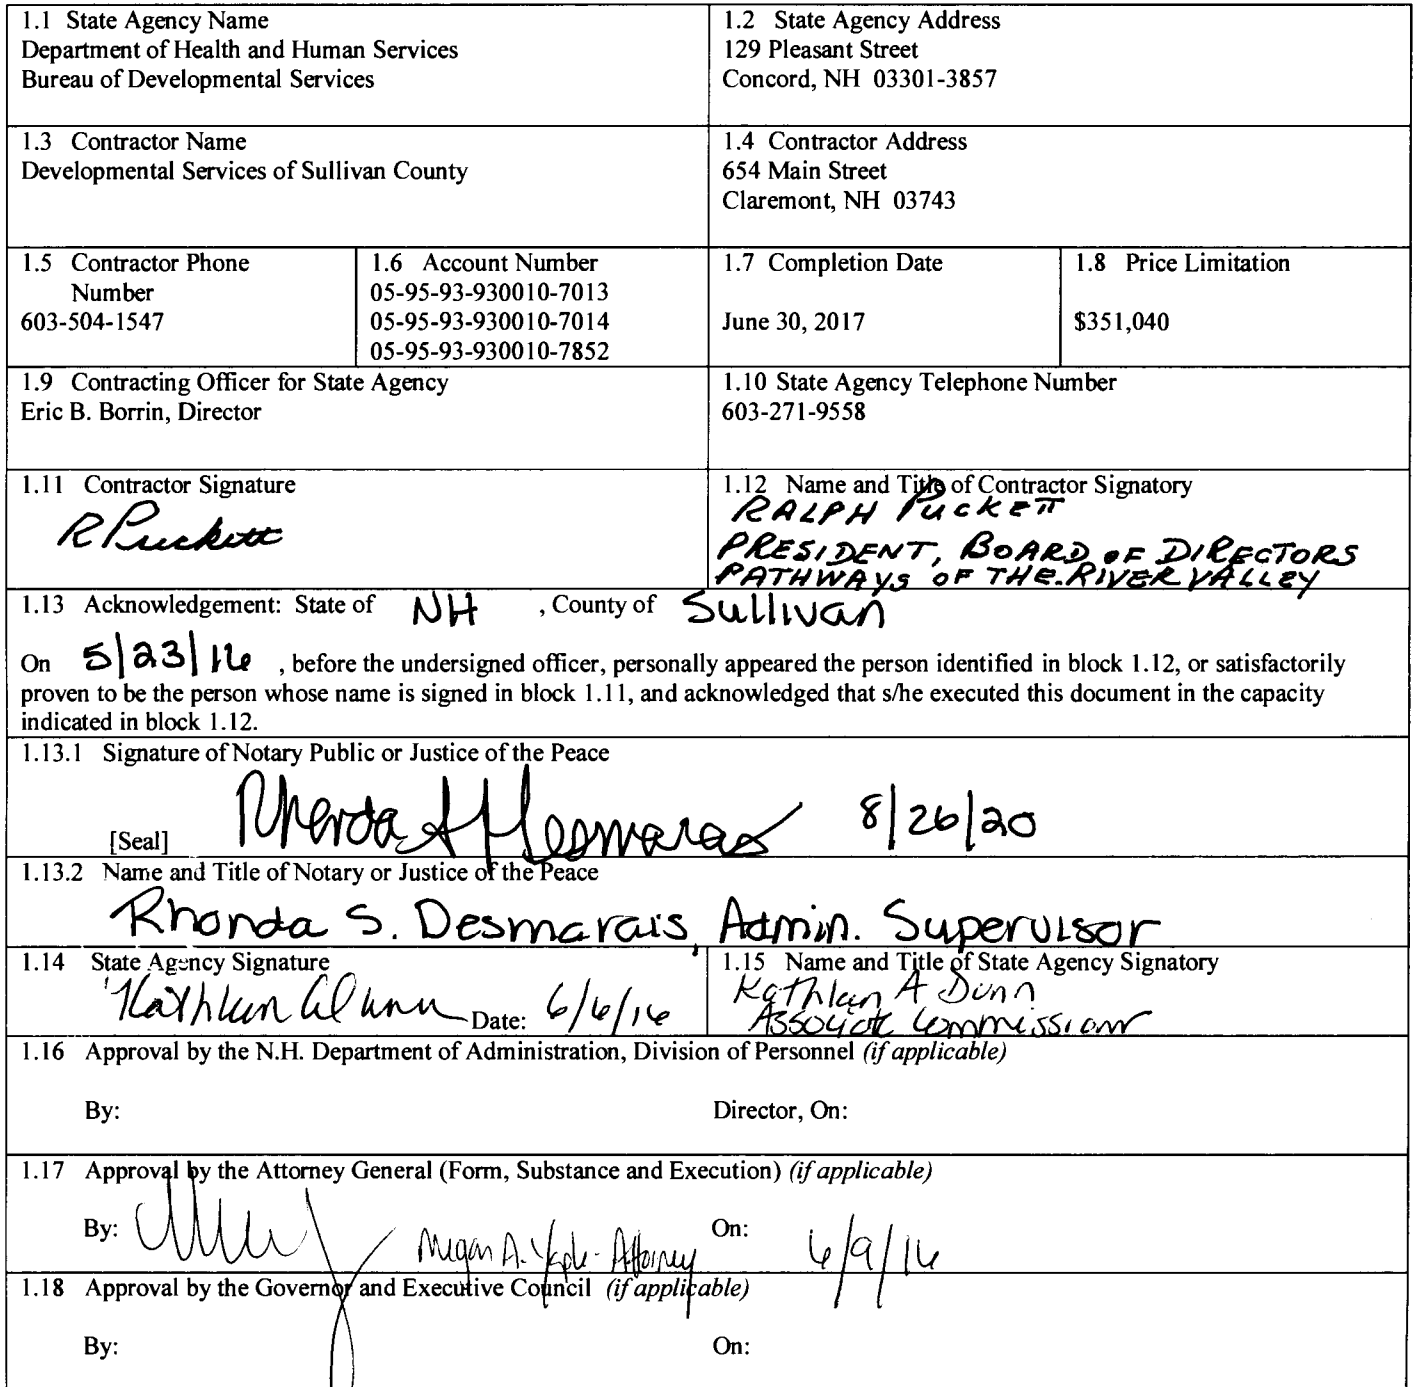 1.1 State Agency Name
Department of Health and Human Services
Bureau of Developmental Services
1.2 State Agency Address
129 Pleasant Street
Concord, NH 03301-3857
1.3 Contractor Name
Developmental Services of Sullivan County
1.4 Contractor Address
654 Main Street
Claremont, NH 03743
1.5 Contractor Phone
Number
603-504-1547
1.6 Account Number
05-95-93-930010-7013
05-95-93-930010-7014
05-95-93-930010-7852
1.7 Completion Date
June 30, 2017
1.8 Price Limitation
$351,040
1.9 Contracting Officer for State Agency
Eric B. Borrin, Director
1.10 State Agency Telephone Number
603-271-9558
1.11 Contractor Signature
R Puckett
1.12 Name and Title of Contractor Signatory
RALPH PUCKETT
PRESIDENT, BOARD OF DIRECTORS
PATHWAYS OF THE RIVER VALLEY
1.13 Acknowledgement: State of NH , County of Sullivan
On 5/23/16 , before the undersigned officer, personally appeared the person identified in block 1.12, or satisfactorily
proven to be the person whose name is signed in block 1.11, and acknowledged that s/he executed this document in the capacity
indicated in block 1.12.
1.13.1 Signature of Notary Public or Justice of the Peace
[Seal] Rhonda S Desmarais 8/26/20
1.13.2 Name and Title of Notary or Justice of the Peace
Rhonda S. Desmarais, Admin. Supervisor
1.14 State Agency Signature
Kathleen A Dunn Date: 6/6/16
1.15 Name and Title of State Agency Signatory
Kathleen A Dunn
Associate Commissioner
1.16 Approval by the N.H. Department of Administration, Division of Personnel (if applicable)
By: Director, On:
1.17 Approval by the Attorney General (Form, Substance and Execution) (if applicable)
By: Megan A. - Attorney On: 6/9/16
1.18 Approval by the Governor and Executive Council (if applicable)
By: On: